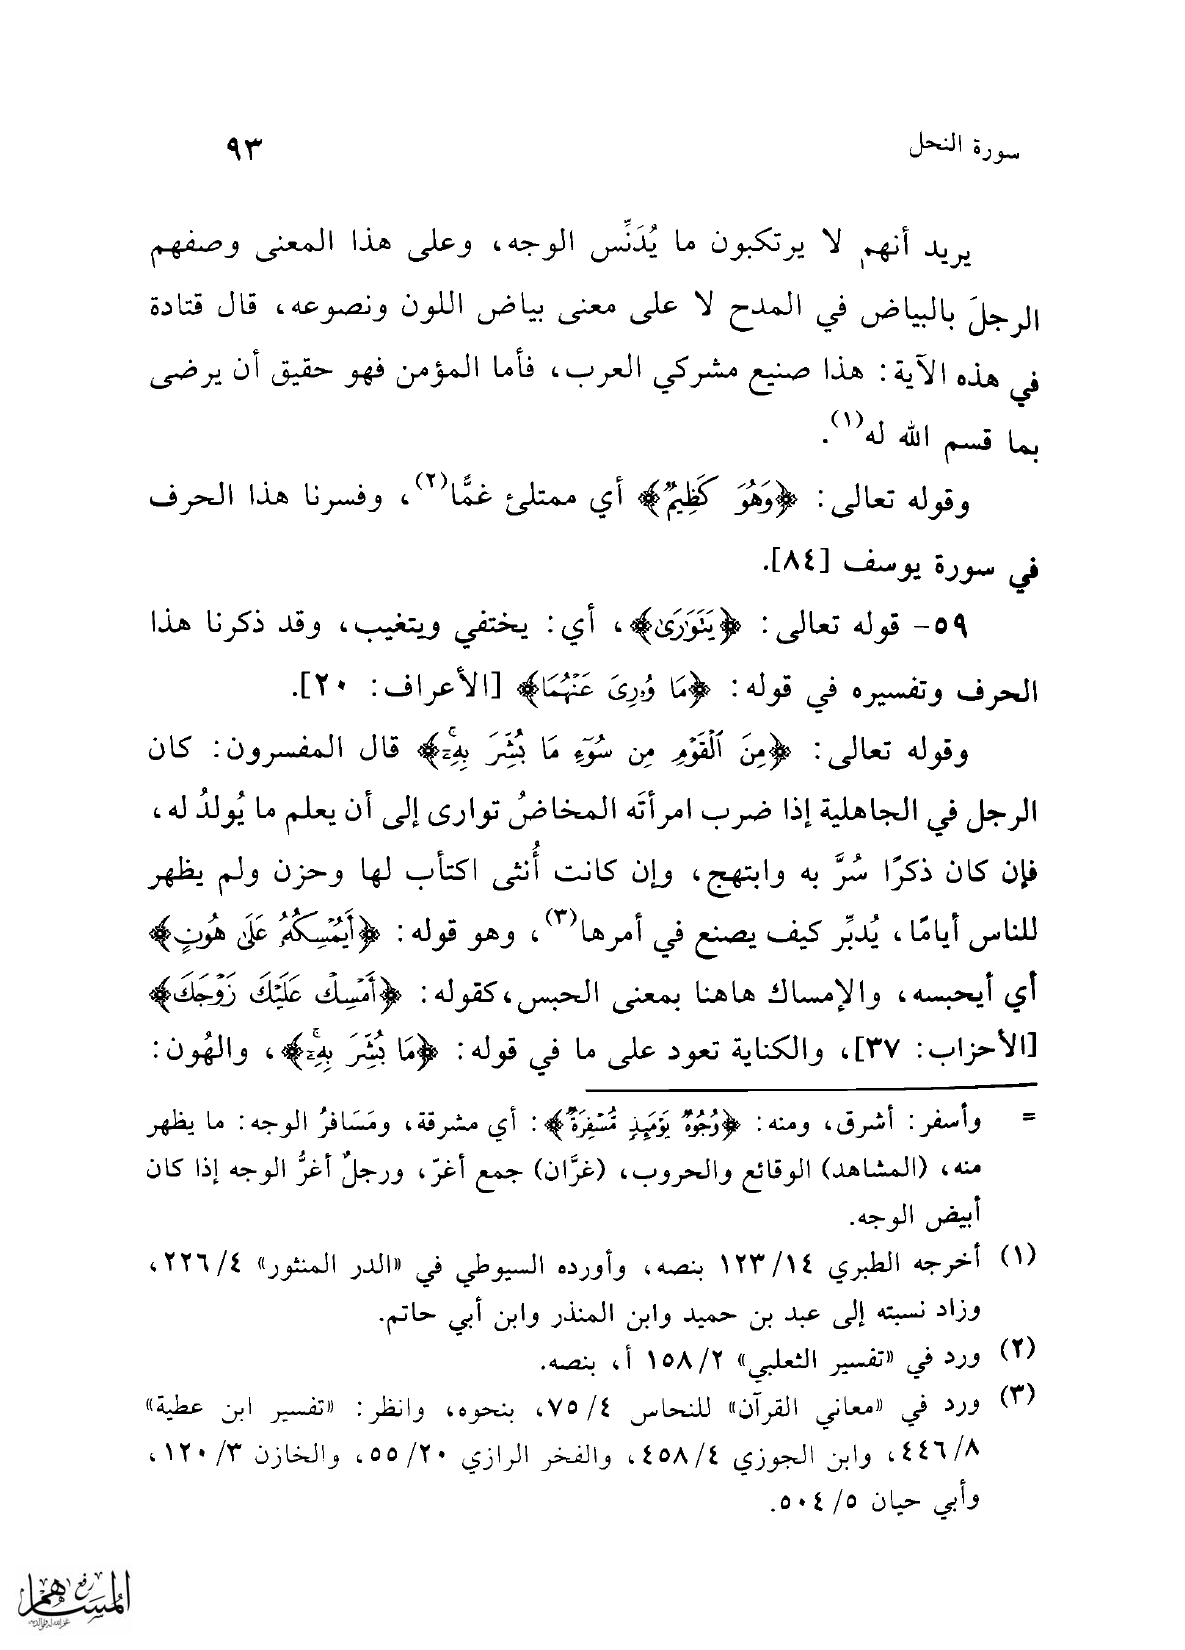 سورة النحل
٩٣
يريد أنهم لا يرتكبون ما يُدَنِّس الوجه، وعلى هذا المعنى وصفهم
الرجلَ بالبياض في المدح لا على معنى بياض اللون ونصوعه، قال قتادة
في هذه الآية: هذا صنيع مشركي العرب، فأما المؤمن فهو حقيق أن يرضى
بما قسم الله له(١).
وقوله تعالى: ﴿وَهُوَ كَظِيمٌ﴾ أي ممتلئ غمًّا(٢)، وفسرنا هذا الحرف
في سورة يوسف [٨٤].
٥٩- قوله تعالى: ﴿يَتَوَارَىٰ﴾، أي: يختفي ويتغيب، وقد ذكرنا هذا
الحرف وتفسيره في قوله: ﴿مَا وُۥرِىَ عَنْهُمَا﴾ [الأعراف: ٢٠].
وقوله تعالى: ﴿مِنَ ٱلْقَوْمِ مِن سُوٓءِ مَا بُشِّرَ بِهِۦٓۚ﴾ قال المفسرون: كان
الرجل في الجاهلية إذا ضرب امرأتَه المخاضُ توارى إلى أن يعلم ما يُولدُ له،
فإن كان ذكرًا سُرَّ به وابتهج، وإن كانت أُنثى اكتأب لها وحزن ولم يظهر
للناس أيامًا، يُدبِّر كيف يصنع في أمرها(٣)، وهو قوله: ﴿أَيُمْسِكُهُۥ عَلَىٰ هُونٍ﴾
أي أيحبسه، والإمساك هاهنا بمعنى الحبس،كقوله: ﴿أَمْسِكْ عَلَيْكَ زَوْجَكَ﴾
[الأحزاب: ٣٧]، والكناية تعود على ما في قوله: ﴿مَا بُشِّرَ بِهِۦٓۚ﴾، والهُون:
= وأسفر: أشرق، ومنه: ﴿وُجُوهٌ يَوْمَئِذٍ مُّسْفِرَةٌ﴾: أي مشرقة، ومَسَافرُ الوجه: ما يظهر
منه، (المشاهد) الوقائع والحروب، (غرَّان) جمع أغرّ، ورجلٌ أغرُّ الوجه إذا كان
أبيض الوجه.
(١) أخرجه الطبري ١٤/ ١٢٣ بنصه، وأورده السيوطي في «الدر المنثور» ٤/ ٢٢٦،
وزاد نسبته إلى عبد بن حميد وابن المنذر وابن أبي حاتم.
(٢) ورد في «تفسير الثعلبي» ٢/ ١٥٨ أ، بنصه.
(٣) ورد في «معاني القرآن» للنحاس ٤/ ٧٥، بنحوه، وانظر: «تفسير ابن عطية»
٨/ ٤٤٦، وابن الجوزي ٤/ ٤٥٨، والفخر الرازي ٢٠/ ٥٥، والخازن ٣/ ١٢٠،
وأبي حيان ٥/ ٥٠٤.
رفع
المساهم